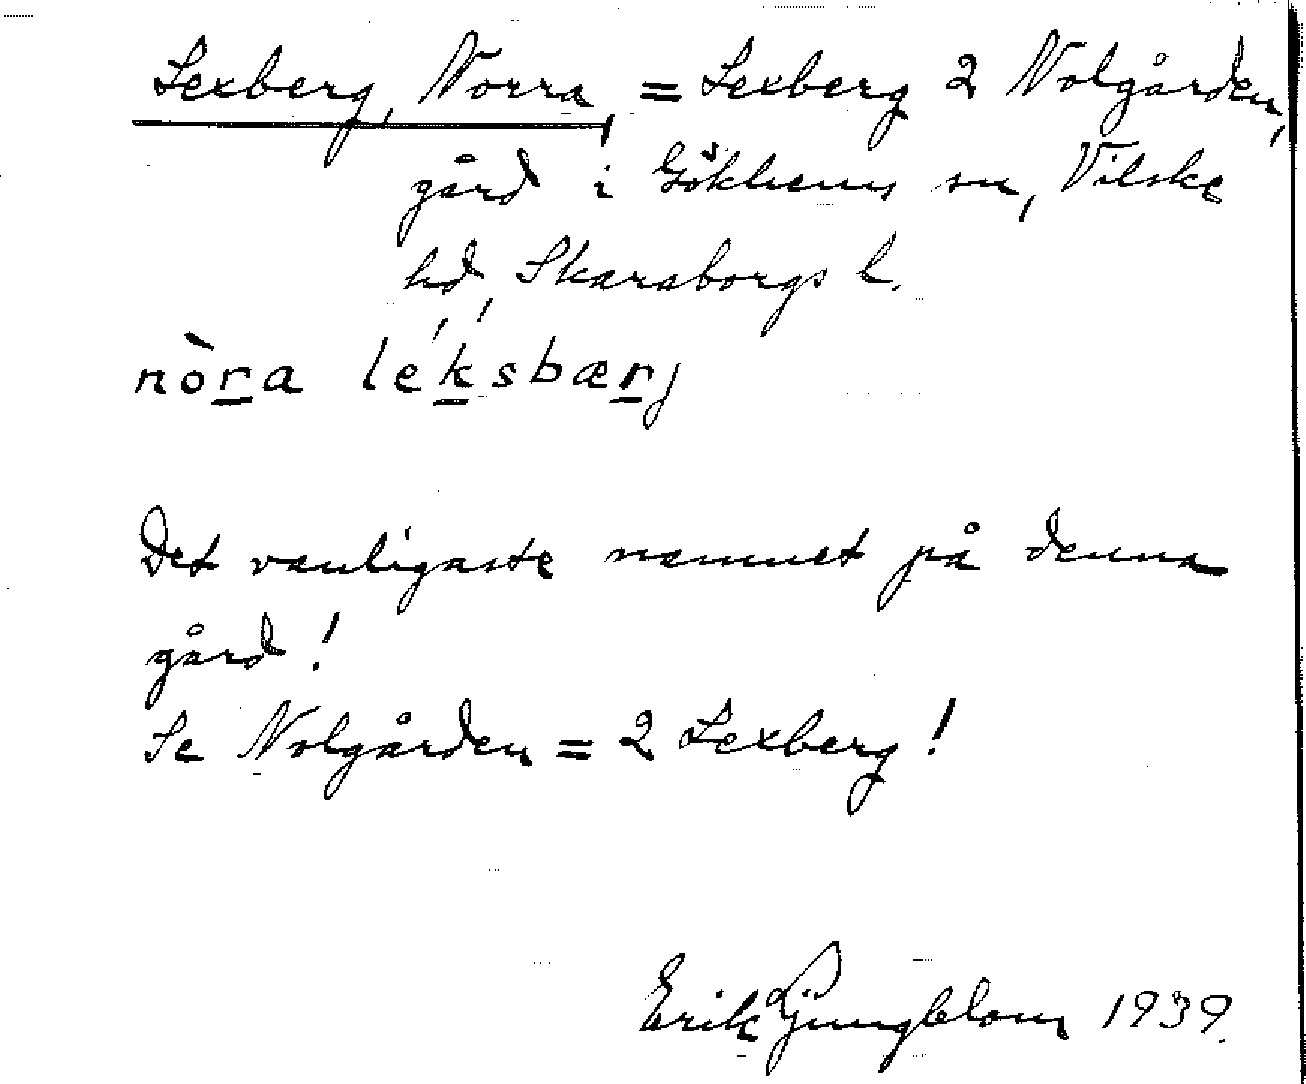 Lexberg, Norra = Lexberg 2 Nolgården,
gård i Gökhems sn, Vilske
hd, Skaraborgs l.
nòra léksbærj
Det vanligaste namnet på denna
gård!
Se Nolgården = 2 Lexberg!
Erik Ljungblom 1939.